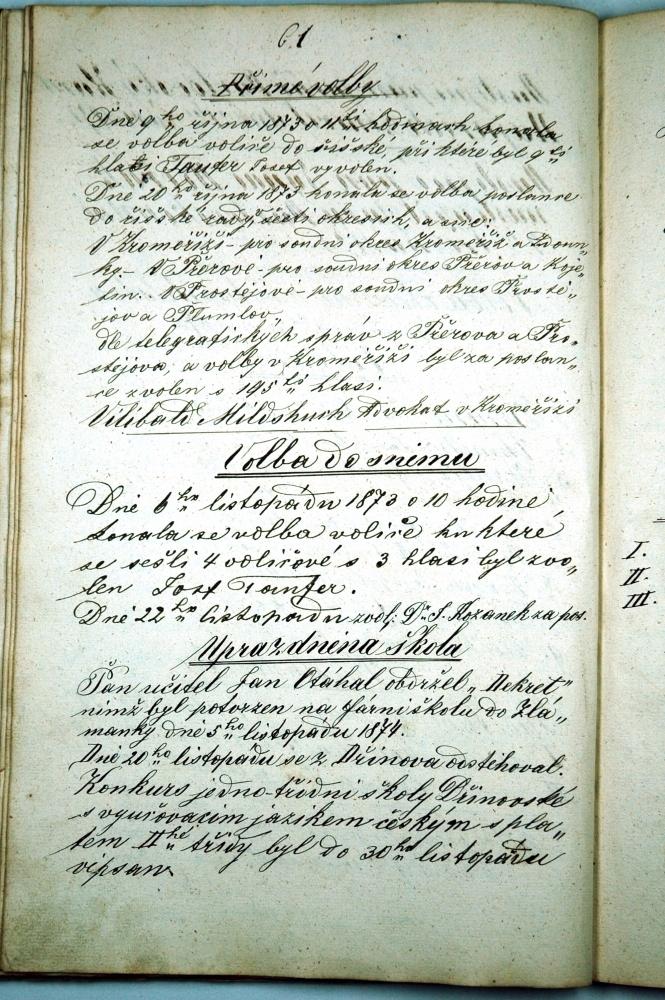 61
Přímé volby
Dne 9ho října 1873 o 11ti hodinach konala
se volba voliče do řišské, při které byl 9ti
hlasi Taufer Josef vyvolen.
Dne 20ho října 1873 konala se volba poslance
do řišské rady, šesti okresich, a sice:
V Kroměříži – pro soudni okres Kroměříž a Zdoun„
ky – V Přerově – pro soudni okres Přerov a Koje„
tin. V Prostějově – pro soudni okres Prostě„
jov a Plumlov.
dle telegrafických správ z Přerova a Pro„
stějova, a volby v Kroměříži byl za poslan„
ce zvolen s 195ti hlasi.
Vilibald Mildshuch Advokat v Kroměříži
Volba do snému
Dne 6ho listopadu 1873 o 10 hodině
konala se volba voliče ku které
se sešli 4 voličové s 3 hlasi byl zvo„
len Josf Taufer.
Dne 22ho listopadu zvol: Dr. J. Kozanek za pos.
Uprazdněna škola
Pan učitel Jan Otáhal obdržel „Dekret"
nimž byl potvrzen na fárni školu do Zlá„
manky dne 5ho listopadu 1874.
Dne 20ho listopadu se z Dřinova odstěhoval.
Konkurs jedno-třídni školy Dřinovské
s vyučovacim jazikem českym s pla„
tem IIhé třídy byl do 30ho listopadu
vipsan
I.
II.
III.